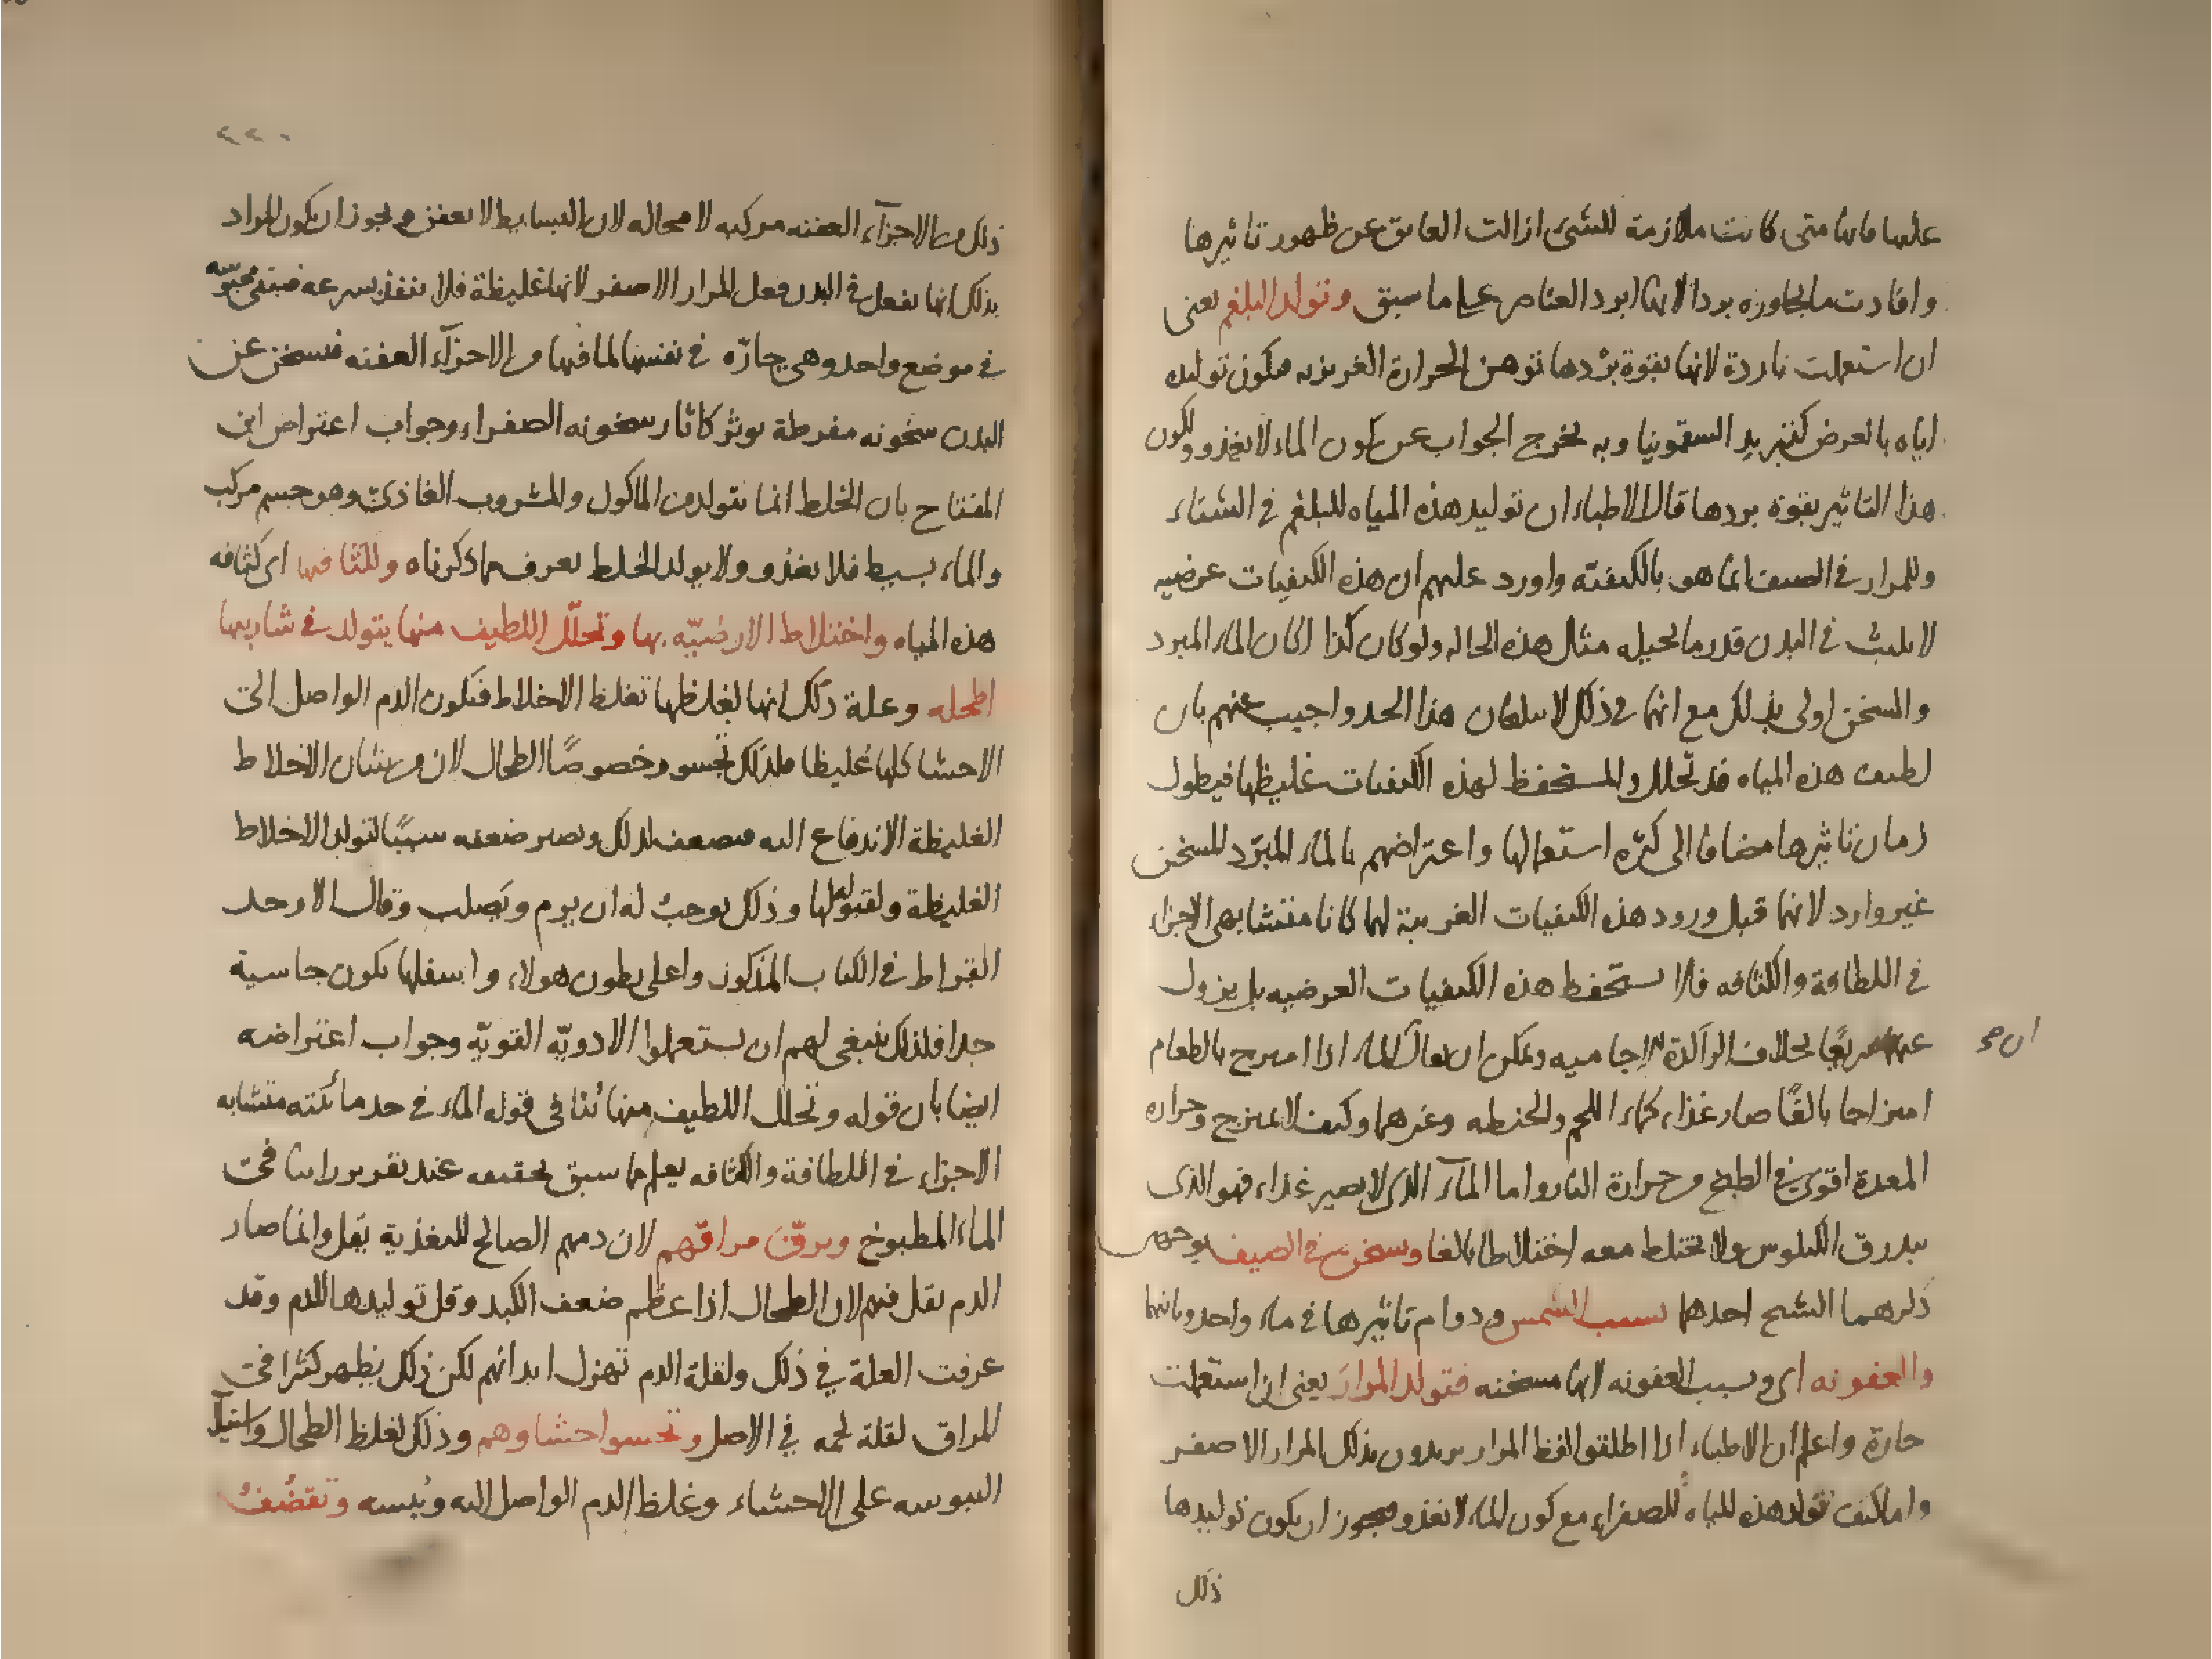 عليها فانها متى كانت ملازمة للشى ازالت العايق عن ظهور تاثيرها
وافادت ما تجاوره بردا لانها ابرد العناصر على ما سبق وتولد البلغم يعنى
ان استعملت باردة لانها بقوة بردها توهن الحرارة الغريزيه فيكون توليده
اياه بالعرض كتبريد السقمونيا وبه يخرج الجواب عن كون الماء لا يغذو ولكون
هذا التاثير بقوة بردها قال الاطباء ان توليد هذه المياه للبلغم في الشتاء
وللمرار في الصيف انما هو بالكيفيته واورد عليهم ان هذه الكيفيات عرضيه
لا يلبث في البدن قدر ما يحيله مثال هذه الحاله ولو كان كذا لكان الماء المبرد
والمسخن اولى بذلك مع انهما في ذلك لا يبلغان هذا الحد واجيب عنهم بان
لطيف هذه المياه قد تحلل والمستحفظ لهذه الكيفيات غليظها فيطول
زمان تاثيرها مضافا الى كثره استعمالها واعتراضهم بالماء المبرّد المسخن
غير وارد لانهما قبل ورود هذه الكيفيات الغريبة لهما كانا متشابهى الاجزاء
في اللطافة والكثافه فلا يستحفظ هذه الكيفيات العرضيه بل يزول
عنها سريعًا بخلاف الراكدة الاجاميه ويمكن ان يقال الماء اذا امتزج بالطعام
ان
امتزاجا بالغًا صار غذاء كماء اللحم والحنطه وغيرهما وكيف لا يمتزج وحراره
المعدة اقوى في الطبخ من حرارة النار واما الماء الذى لا يصير غذاء فهو الذى
يبدرق الكيلوس ولا يختلط معه اختلاطا بالغا وسخن في الصيف بوجهين
ذكرهما الشيخ احدهما بسبب الشمس ودوام تاثيرها في ماء واحد وثانيهما
والعفونه اى وبسبب العفونه لانها مسخنه فتولد المرار يعنى ان استعملت
حارة واعلم ان الاطباء اذا اطلقوا لفظ المرار يريدون بذلك المرار الاصفر
واما كيف تولد هذه المياه للصفراء مع كون الماء لا يغذو فيجوز ان يكون توليدها
ذلك
٢٢٠
ذلك من الاجزآء العفنه مركبه لا محاله لان البسايط لا تعفن ويجوز ان يكون المراد
بذلك انها تفعل في البدن فعل المرار الاصفر لانها غليظة فلا تنفذ بسرعه فتبقى محتبسه
في موضع واحد وهى حارّه في نفسها لما فيها من الاجزآء العفنه فسخن عن
البدن سخونه مفرطة يوثر كاثار سخونه الصفراء وجواب اعتراض ابن
المفتاح بان الخلط انما يتولد من الماكول والمشروب الغاذى وهو جسم مركب
والماء بسيط فلا يغذو ولا يولد الخلط يعرف مما ذكرناه وللثافها اى كثافه
هذه المياه واختلاط الارضيّه بها وتحلّل اللطيف منها يتولد في شاربها
اطحله وعلة ذلك انها لغلظها تغلظ الاخلاط فيكون الدم الواصل الى
الاحشا كلها غليظا فلذلك تجسو وخصوصًا الطحال لان من شان الاخلاط
الغليظة الاندفاع اليه فيضعف لذلك ويصير ضعفه سببًا لتولد الاخلاط
الغليظة ولقبوله لها وذلك يوجب له ان يرم ويصلب وقال الاوحد
القبراط في الكتاب المذكور واعلى بطون هولاء واسفلها يكون جاسية
جدا فلذلك ينبغى لهم ان يستعملوا الادويّه القويّه وجواب اعتراضه
ايضا بان قوله وتحلل اللطيف منها يُنافى قوله الماء في حد مائيته متشابه
الاجزاء في اللطافة والكثافه يعلم مما سبق تحقيقه عند تقرير راينا فى
الماء المطبوخ ويرقّ مراقّهم لان دمهم الصالح للتغذية يقل وانما صار
الدم يقل فيهم لان الطحال اذا عظم ضعف الكبد وقل توليدها للدم وقد
عرفت العلة في ذلك ولقلة الدم تهزل ابدانهم لكن ذلك يظهر كثيرا فى
المراق لقلة لحمه في الاصل وتجسوا احشاوهم وذلك لغلظ الطحال واستيلآ
اليبوسه على الاحشاء وغلظ الدم الواصل اليه ويُبسه وتقضُفُ